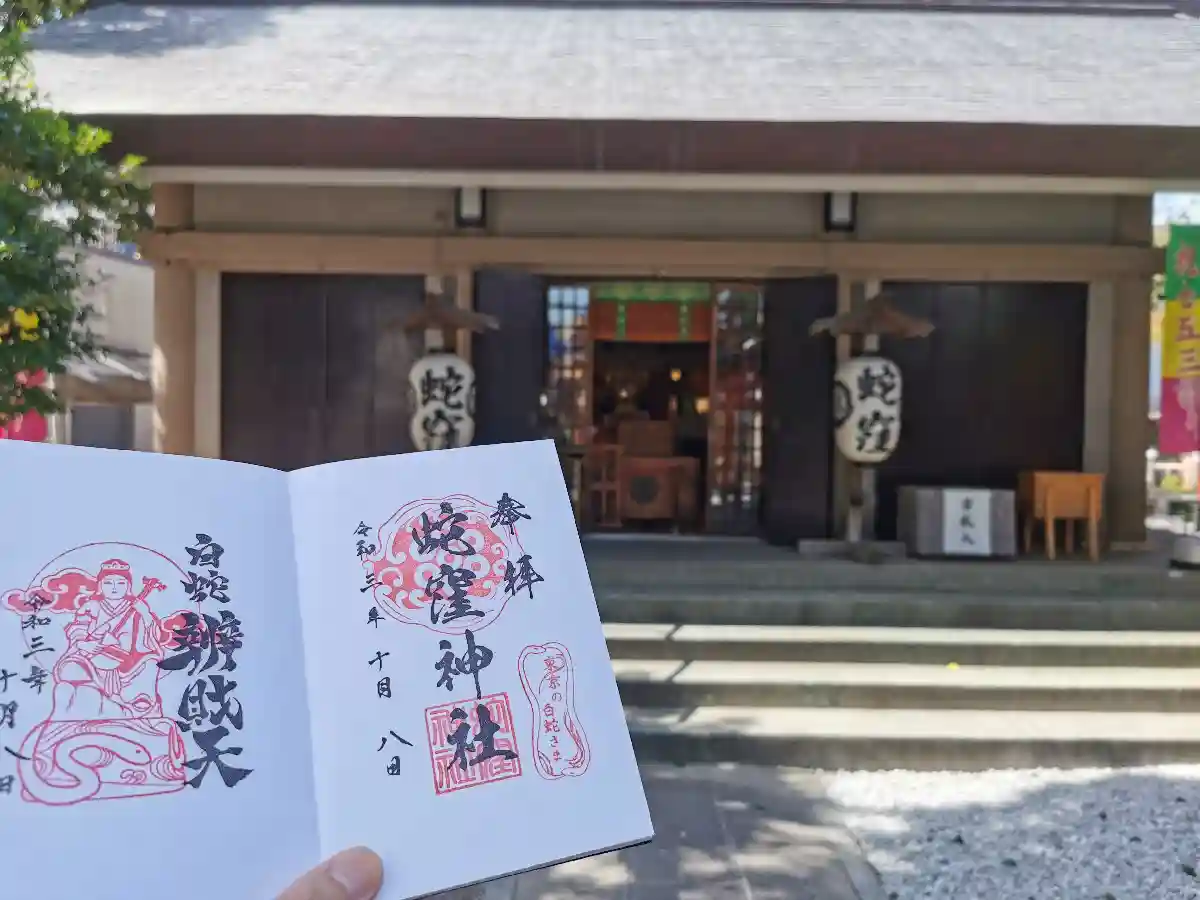 奉拝
蛇窪神社
令和三年
十月八日
東京の白蛇さま
白蛇辨財天
令和三年
十月八日
蛇窪
蛇窪
古札入
五三